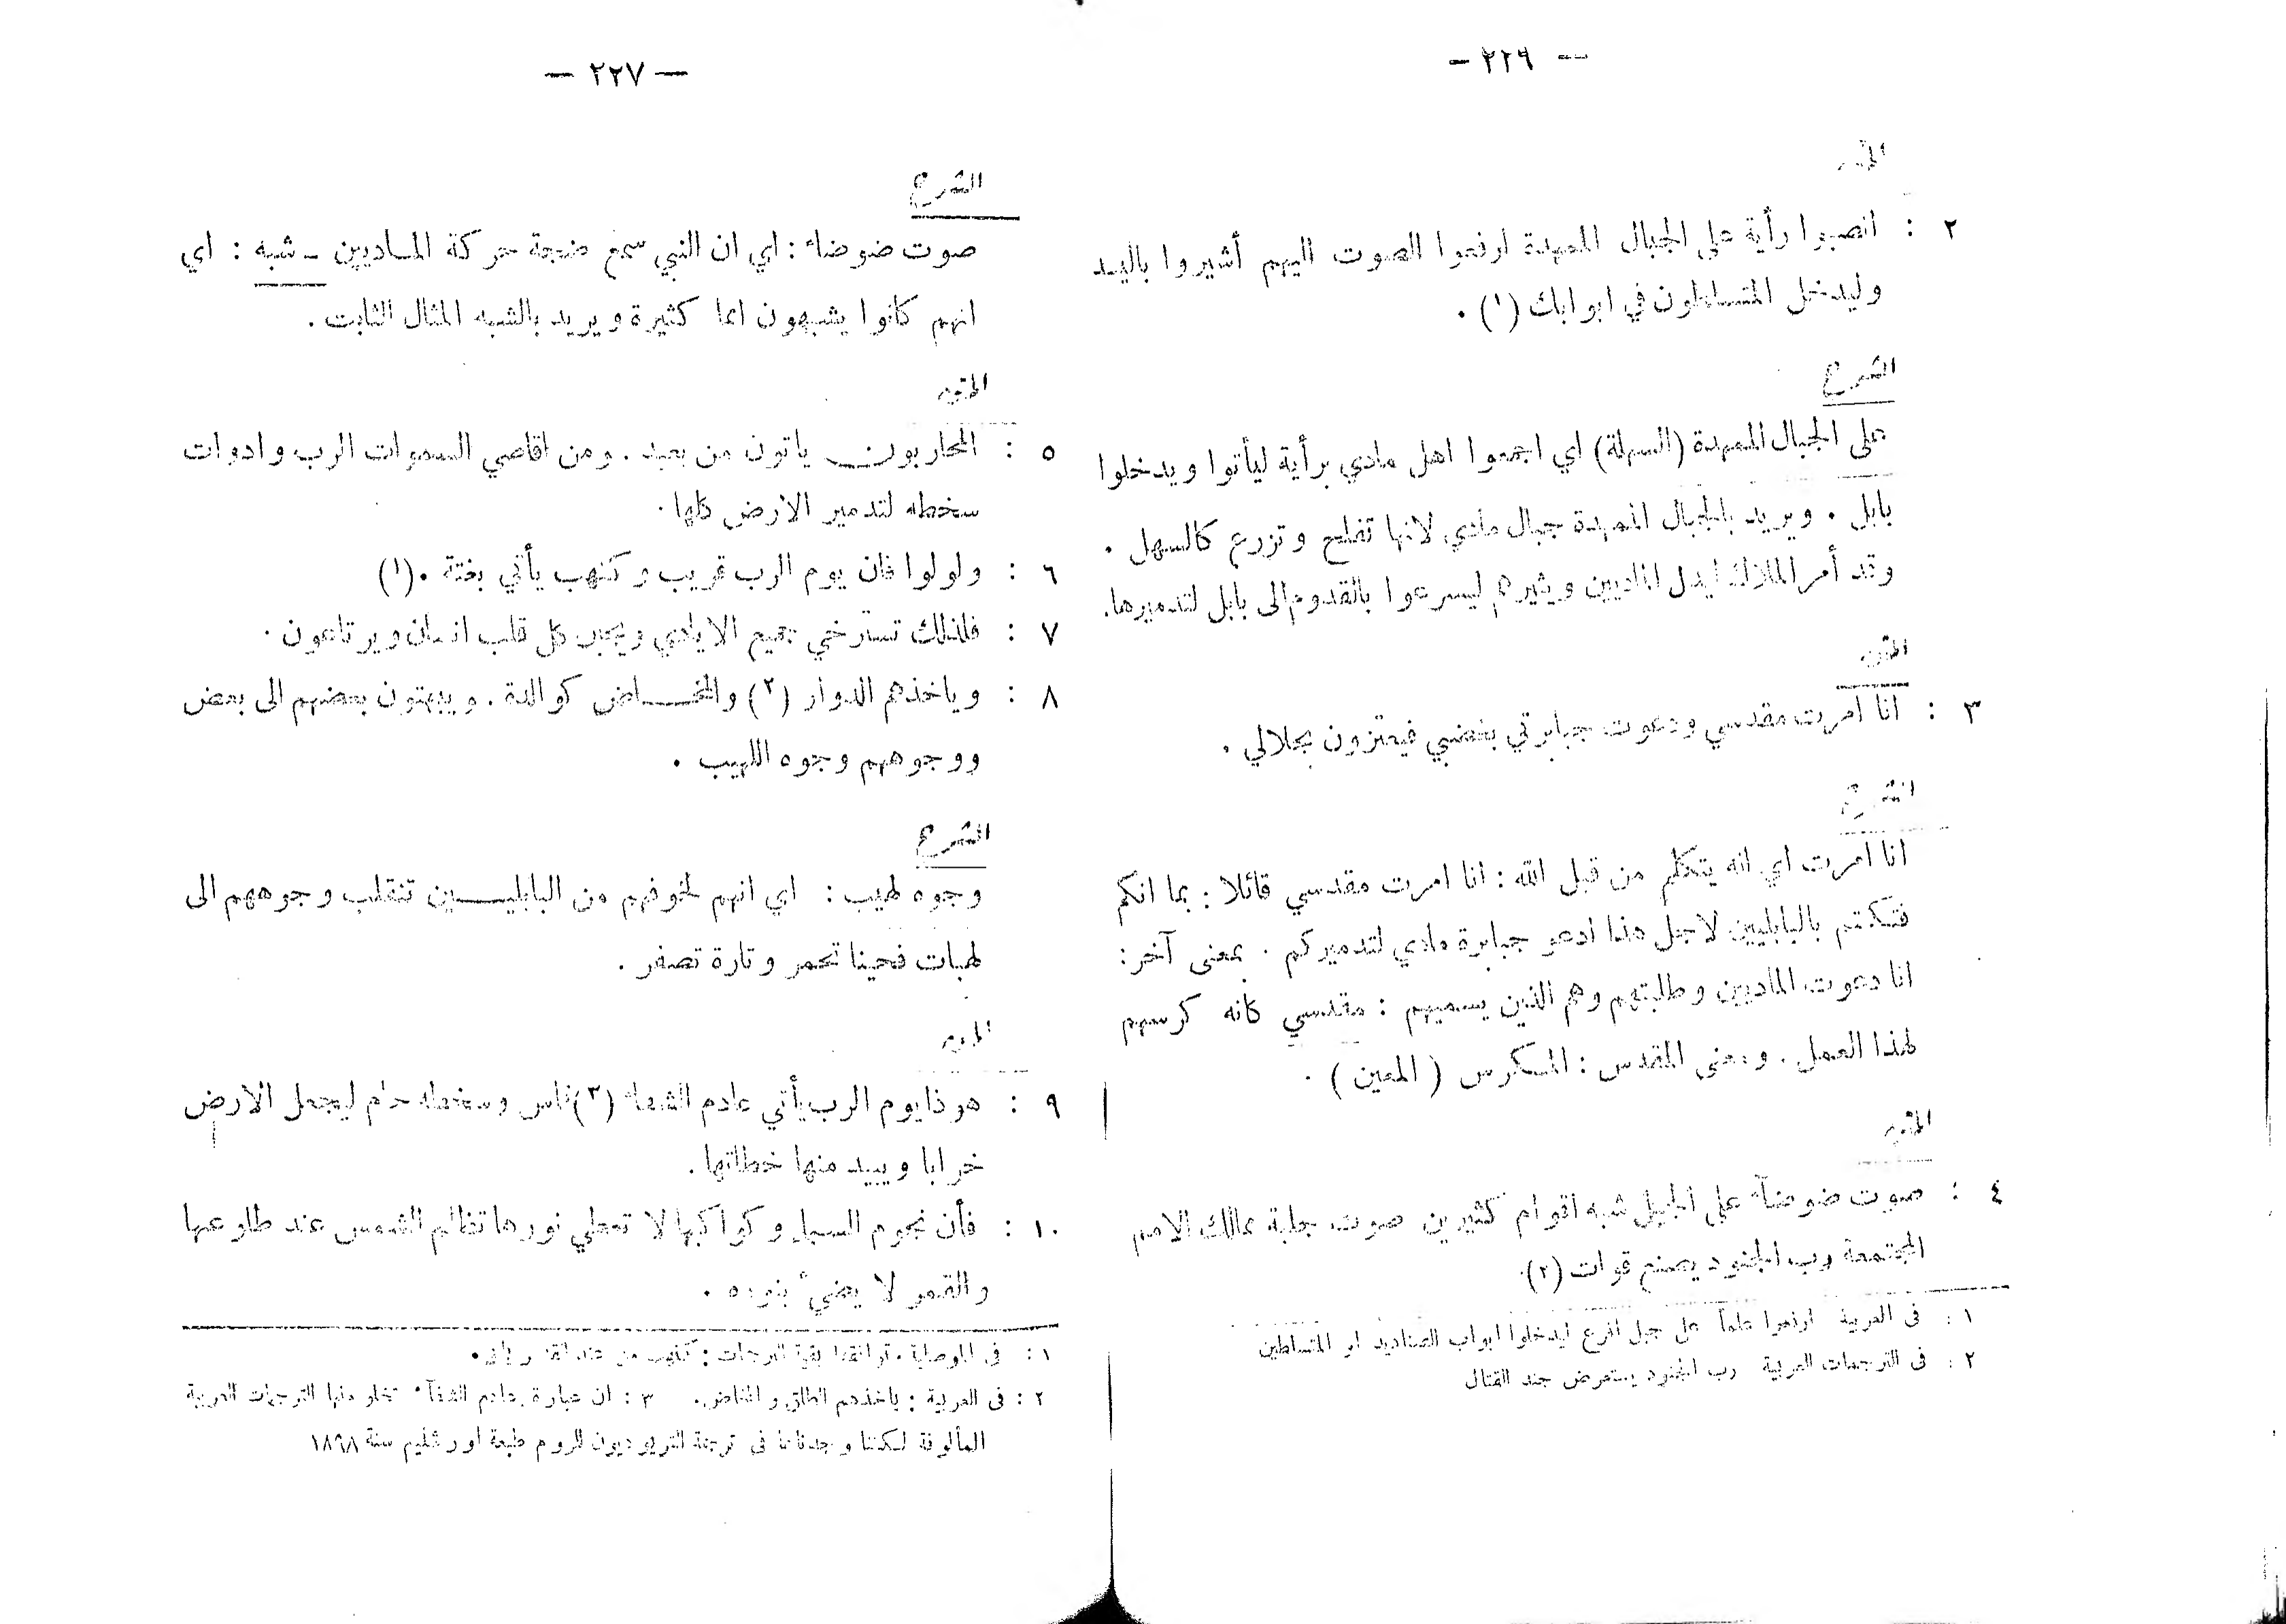 — ٢٢٦ —
المتن
٢ : انصبوا رأية على الجبال الممهدة ارفعوا الصوت اليهم أشيروا باليـد
وليدخل المتسلطون في ابوابك (١) .
الشرح
على الجبال الممهدة (السهلة) اي اجمعوا اهل مادي برأية ليأتوا ويدخلوا
بابل . ويريد بالجبال الممهدة جبال مادي لانها تفلح وتزرع كالسهل .
وقد أمر الملاك ليدل الماديين ويثيرهم ليسرعوا بالقدوم الى بابل لتدميرها.
المتن
٣ : انا امرت مقدسي ودعوت جبابرتي بغضبي فيعتزون بجلالي .
الشرح
انا امرت اي انه يتكلم من قبل الله : انا امرت مقدسي قائلا : بما انكم
فتكتم بالبابليين لاجل هذا ادعو جبابرة مادي لتدميركم . بمعنى آخر :
انا دعوت الماديين وطلبتهم وهم الذين يسميهم : مقدسي كانه كرسهم
لهذا العمل . ومعنى المقدس : المكرس ( المعين ) .
المتن
٤ : صوت ضوضآء على الجبل شبه اقوام كثيرين صوت جلبة ممالك الامم
المجتمعة رب الجنود يصنع قوات (٢).
١ : فى العربية ارفعوا علماً على جبل اقرع ليدخلوا ابواب الصناديد او المتسلطين
٢ : فى الترجمات العربية رب الجنود يستعرض جند القتال
— ٢٢٧ —
الشرح
صوت ضوضاء : اي ان النبي سمع ضجة حركة المـاديين ـ شبه : اي
انهم كانوا يشبهون امما كثيرة ويريد بالشبه المثال الثابت .
المتن
٥ : المحاربون ياتون من بعيد . ومن اقاصي السموات الرب وادوات
سخطه لتدمير الارض كلها .
٦ : ولولوا فان يوم الرب قريب وكنهب يأتي بغتة .(١)
٧ : فلذلك تسترخي جميع الايادي ويجبن كل قلب انسان ويرتاعون .
٨ : وياخذهم الدوار (٢) والمخـــاض كوالدة . ويبهتون بعضهم الى بعض
ووجوههم وجوه اللهيب .
الشرح
وجوه لهيب : اي انهم لخوفهم من البابليـــين تنقلب وجوههم الى
لهبات فحينا تحمر وتارة تصفر .
المتن
٩ : هوذا يوم الرب يأتي عادم الشفاء (٣) قاس وسخطه حام ليجعل الارض
خرابا ويبيد منها خطاتها .
١٠ : فأن نجوم السماء وكواكبها لا تعطي نورها تظلم الشمس عند طلوعها
والقمر لا يضيء بنوره .
١ : فى الموصلية توافقها بقية الترجمات : كنهب من عند القدير يأتي .
٢ : فى العربية : ياخذهم الطلق والمخاض. ٣ : ان عبارة عادم الشفآء تخلو منها الترجمات العربية
المألوفة لكننا وجدناها فى ترجمة التريوديون للروم طبعة اورشليم سنة ١٨٩٨